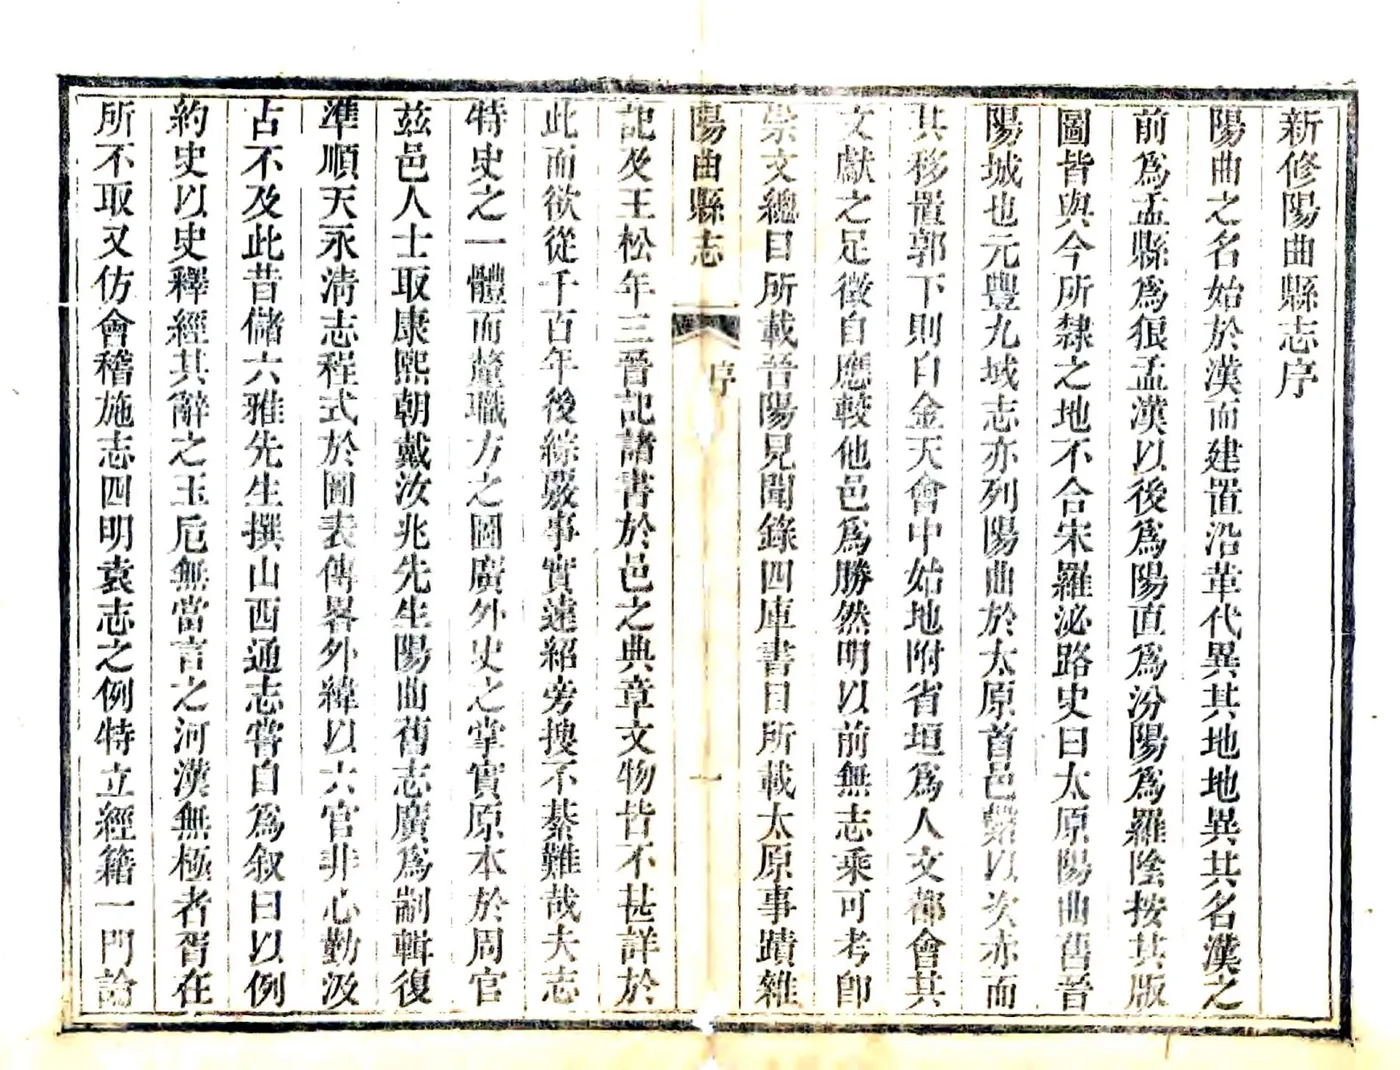 新修陽曲縣志序
陽曲之名始於漢而建置沿革代異其地地異其名漢之
前爲盂縣爲狼孟漢以後爲陽直爲汾陽爲羅陰按其版
圖皆與今所隸之地不合宋羅泌路史曰太原陽曲舊晉
陽城也元豐九域志亦列陽曲於太原首邑縈以次赤而
其移置郭下則自金天會中始地附省垣爲人文都會其
文獻之足徵自應較他邑爲勝然明以前無志乘可考卽
崇文總目所載晉陽見聞錄四庫書目所載太原事蹟雜
陽曲縣志
序
一
記及王松年三晉記諸書於邑之典章文物皆不甚詳於
此而欲從千百年後綜嚴事實遠紹旁搜不綦難哉夫志
特史之一體而董職方之圖廣外史之掌實原本於周官
茲邑人士取康熙朝戴汝兆先生陽曲舊志廣爲剬輯復
準順天永清志程式於圖表傳畧外緯以六官非心勤汲
古不及此昔儲六雅先生撰山西通志嘗自爲敘曰以例
約史以史釋經其辭之玉卮無當言之河漢無極者胥在
所不取又仿會稽施志四明袁志之例特立經籍一門論